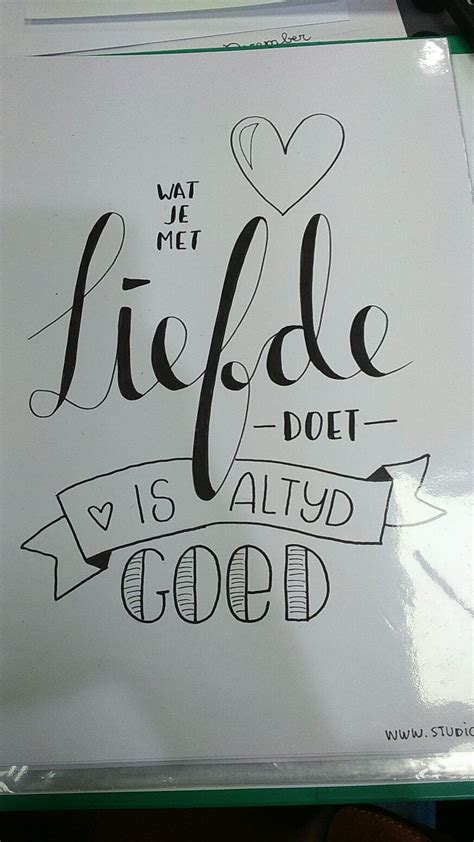 December
WAT
JE
MET
Liefde
- DOET -
IS ALTYD
GOED
WWW.STUDIO